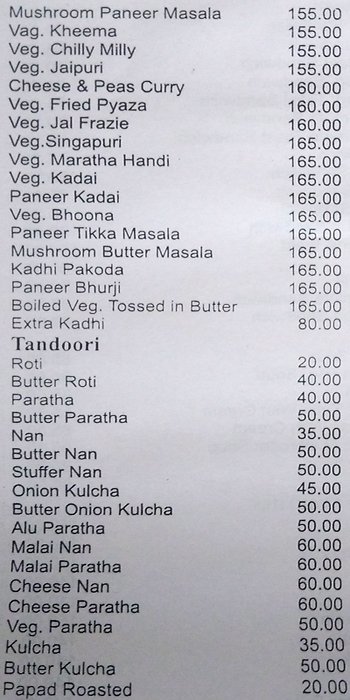 Mushroom Paneer Masala 155.00
Vag. Kheema 155.00
Veg. Chilly Milly 155.00
Veg. Jaipuri 155.00
Cheese & Peas Curry 160.00
Veg. Fried Pyaza 160.00
Veg. Jal Frazie 160.00
Veg.Singapuri 165.00
Veg. Maratha Handi 165.00
Veg. Kadai 165.00
Paneer Kadai 165.00
Veg. Bhoona 165.00
Paneer Tikka Masala 165.00
Mushroom Butter Masala 165.00
Kadhi Pakoda 165.00
Paneer Bhurji 165.00
Boiled Veg. Tossed in Butter 165.00
Extra Kadhi 80.00
Tandoori
Roti 20.00
Butter Roti 40.00
Paratha 40.00
Butter Paratha 50.00
Nan 35.00
Butter Nan 50.00
Stuffer Nan 50.00
Onion Kulcha 45.00
Butter Onion Kulcha 50.00
Alu Paratha 50.00
Malai Nan 60.00
Malai Paratha 60.00
Cheese Nan 60.00
Cheese Paratha 60.00
Veg. Paratha 50.00
Kulcha 35.00
Butter Kulcha 50.00
Papad Roasted 20.00